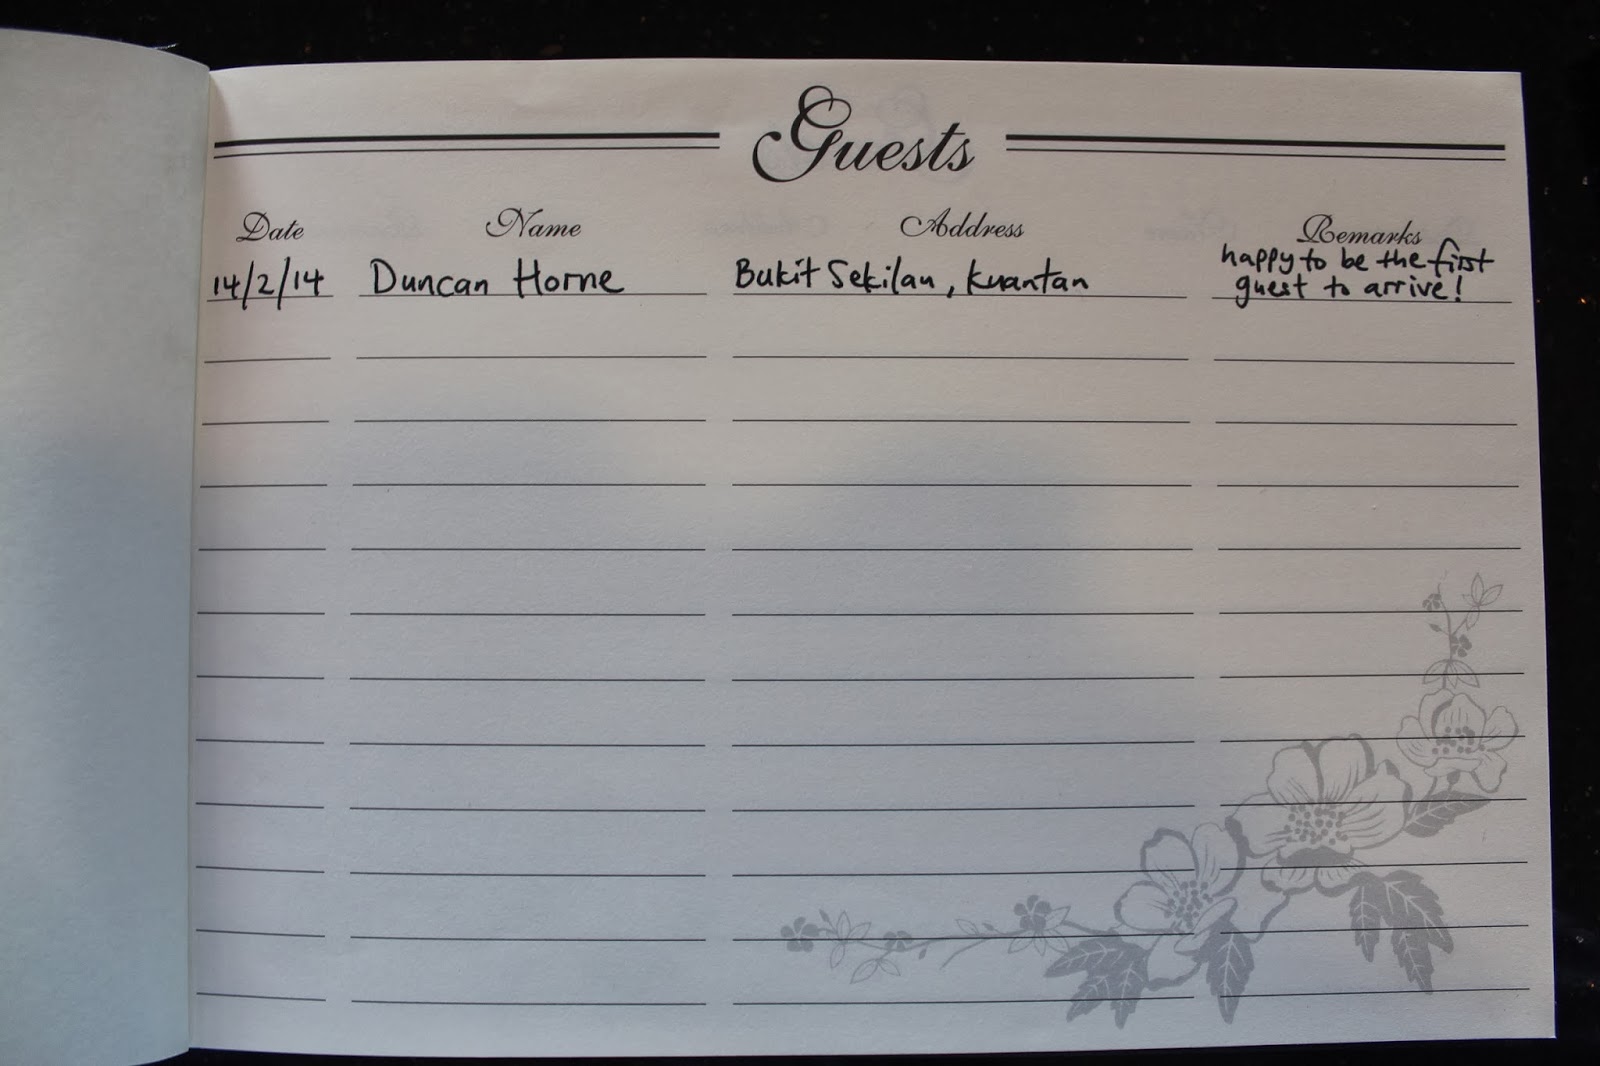 Guests
Date Name Address Remarks
14/2/14 Duncan Horne Bukit Sekilau, Kuantan happy to be the first
guest to arrive!